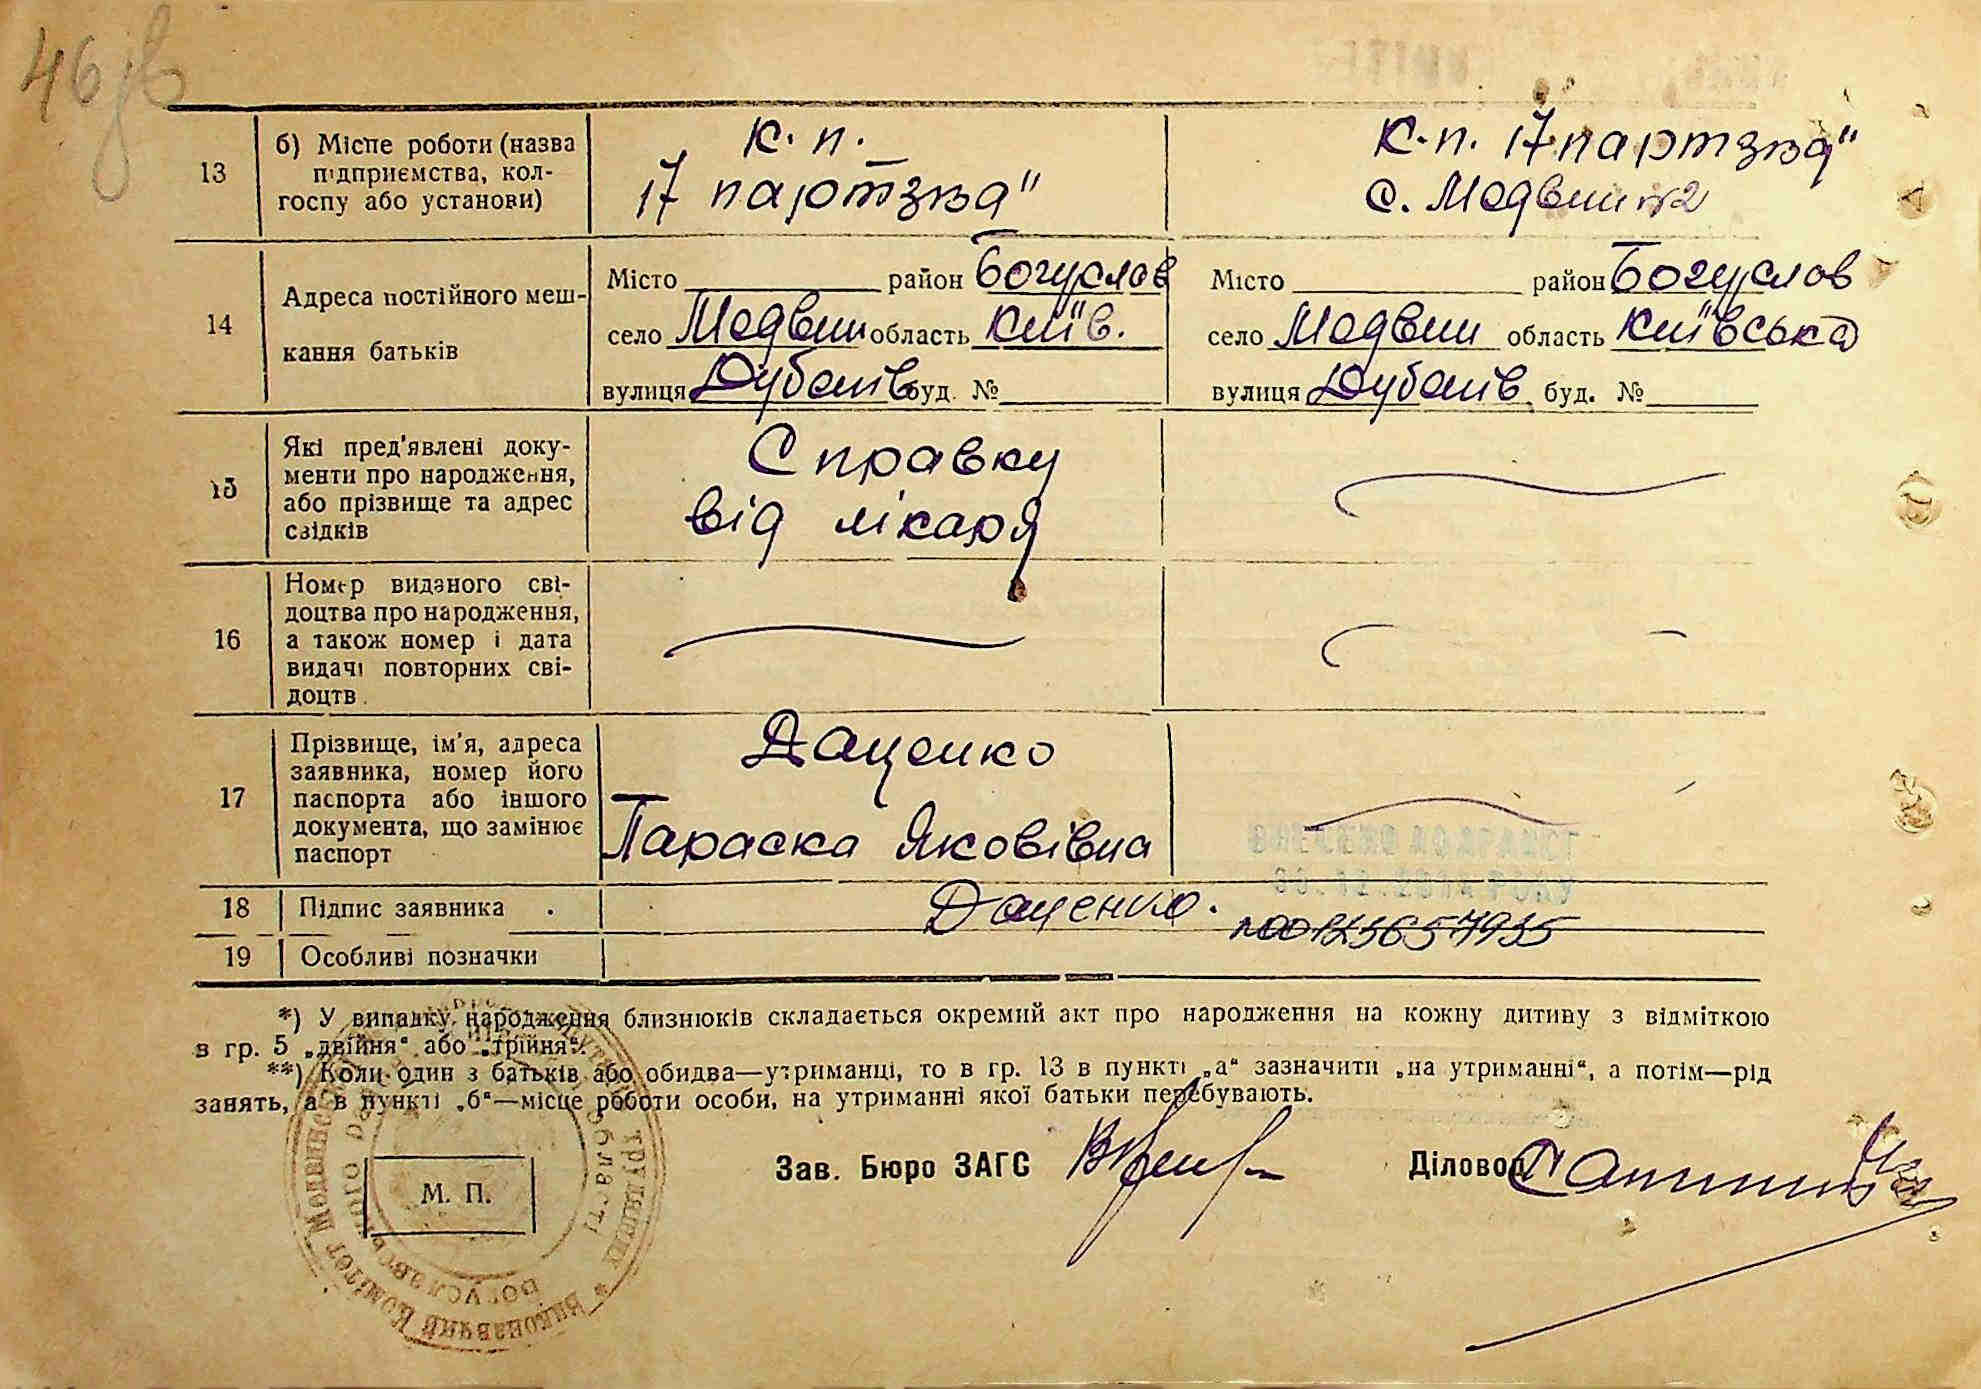 46 зв
13
б) Місце роботи (назва
підприємства, кол-
госпу або установи)
к. п.
17 партзїзд"
к. п. 17 партзїзд"
с. Медвин №2
14
Адреса постійного меш-
кання батьків
Місто район Богуслав
село Медвин область Київ.
вулиця Дубенів буд. №
Місто район Богуслав
село Медвин область Київська
вулиця Дубенів буд. №
15
Які пред'явлені доку-
менти про народження,
або прізвище та адрес
свідків
Справку
від лікаря
16
Номер виданого сві-
доцтва про народження,
а також номер і дата
видачі повторних сві-
доцтв
17
Прізвище, ім'я, адреса
заявника, номер його
паспорта або іншого
документа, що замінює
паспорт
Даценко
Параска Яковівна
18
Підпис заявника
Даценко.
19
Особливі позначки
*) У випадку народження близнюків складається окремий акт про народження на кожну дитину з відміткою
в гр. 5 „двійня" або „трійня".
**) Коли один з батьків або обидва—утриманці, то в гр. 13 в пункті „а" зазначити „на утриманні", а потім—рід
занять, а в пункті „б"—місце роботи особи, на утриманні якої батьки перебувають.
Зав. Бюро ЗАГС
Діловод
М. П.
Виконавчий Комітет
Богуславського
області